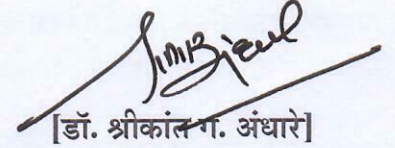 [डॉ. श्रीकांत ग. अंधारे]